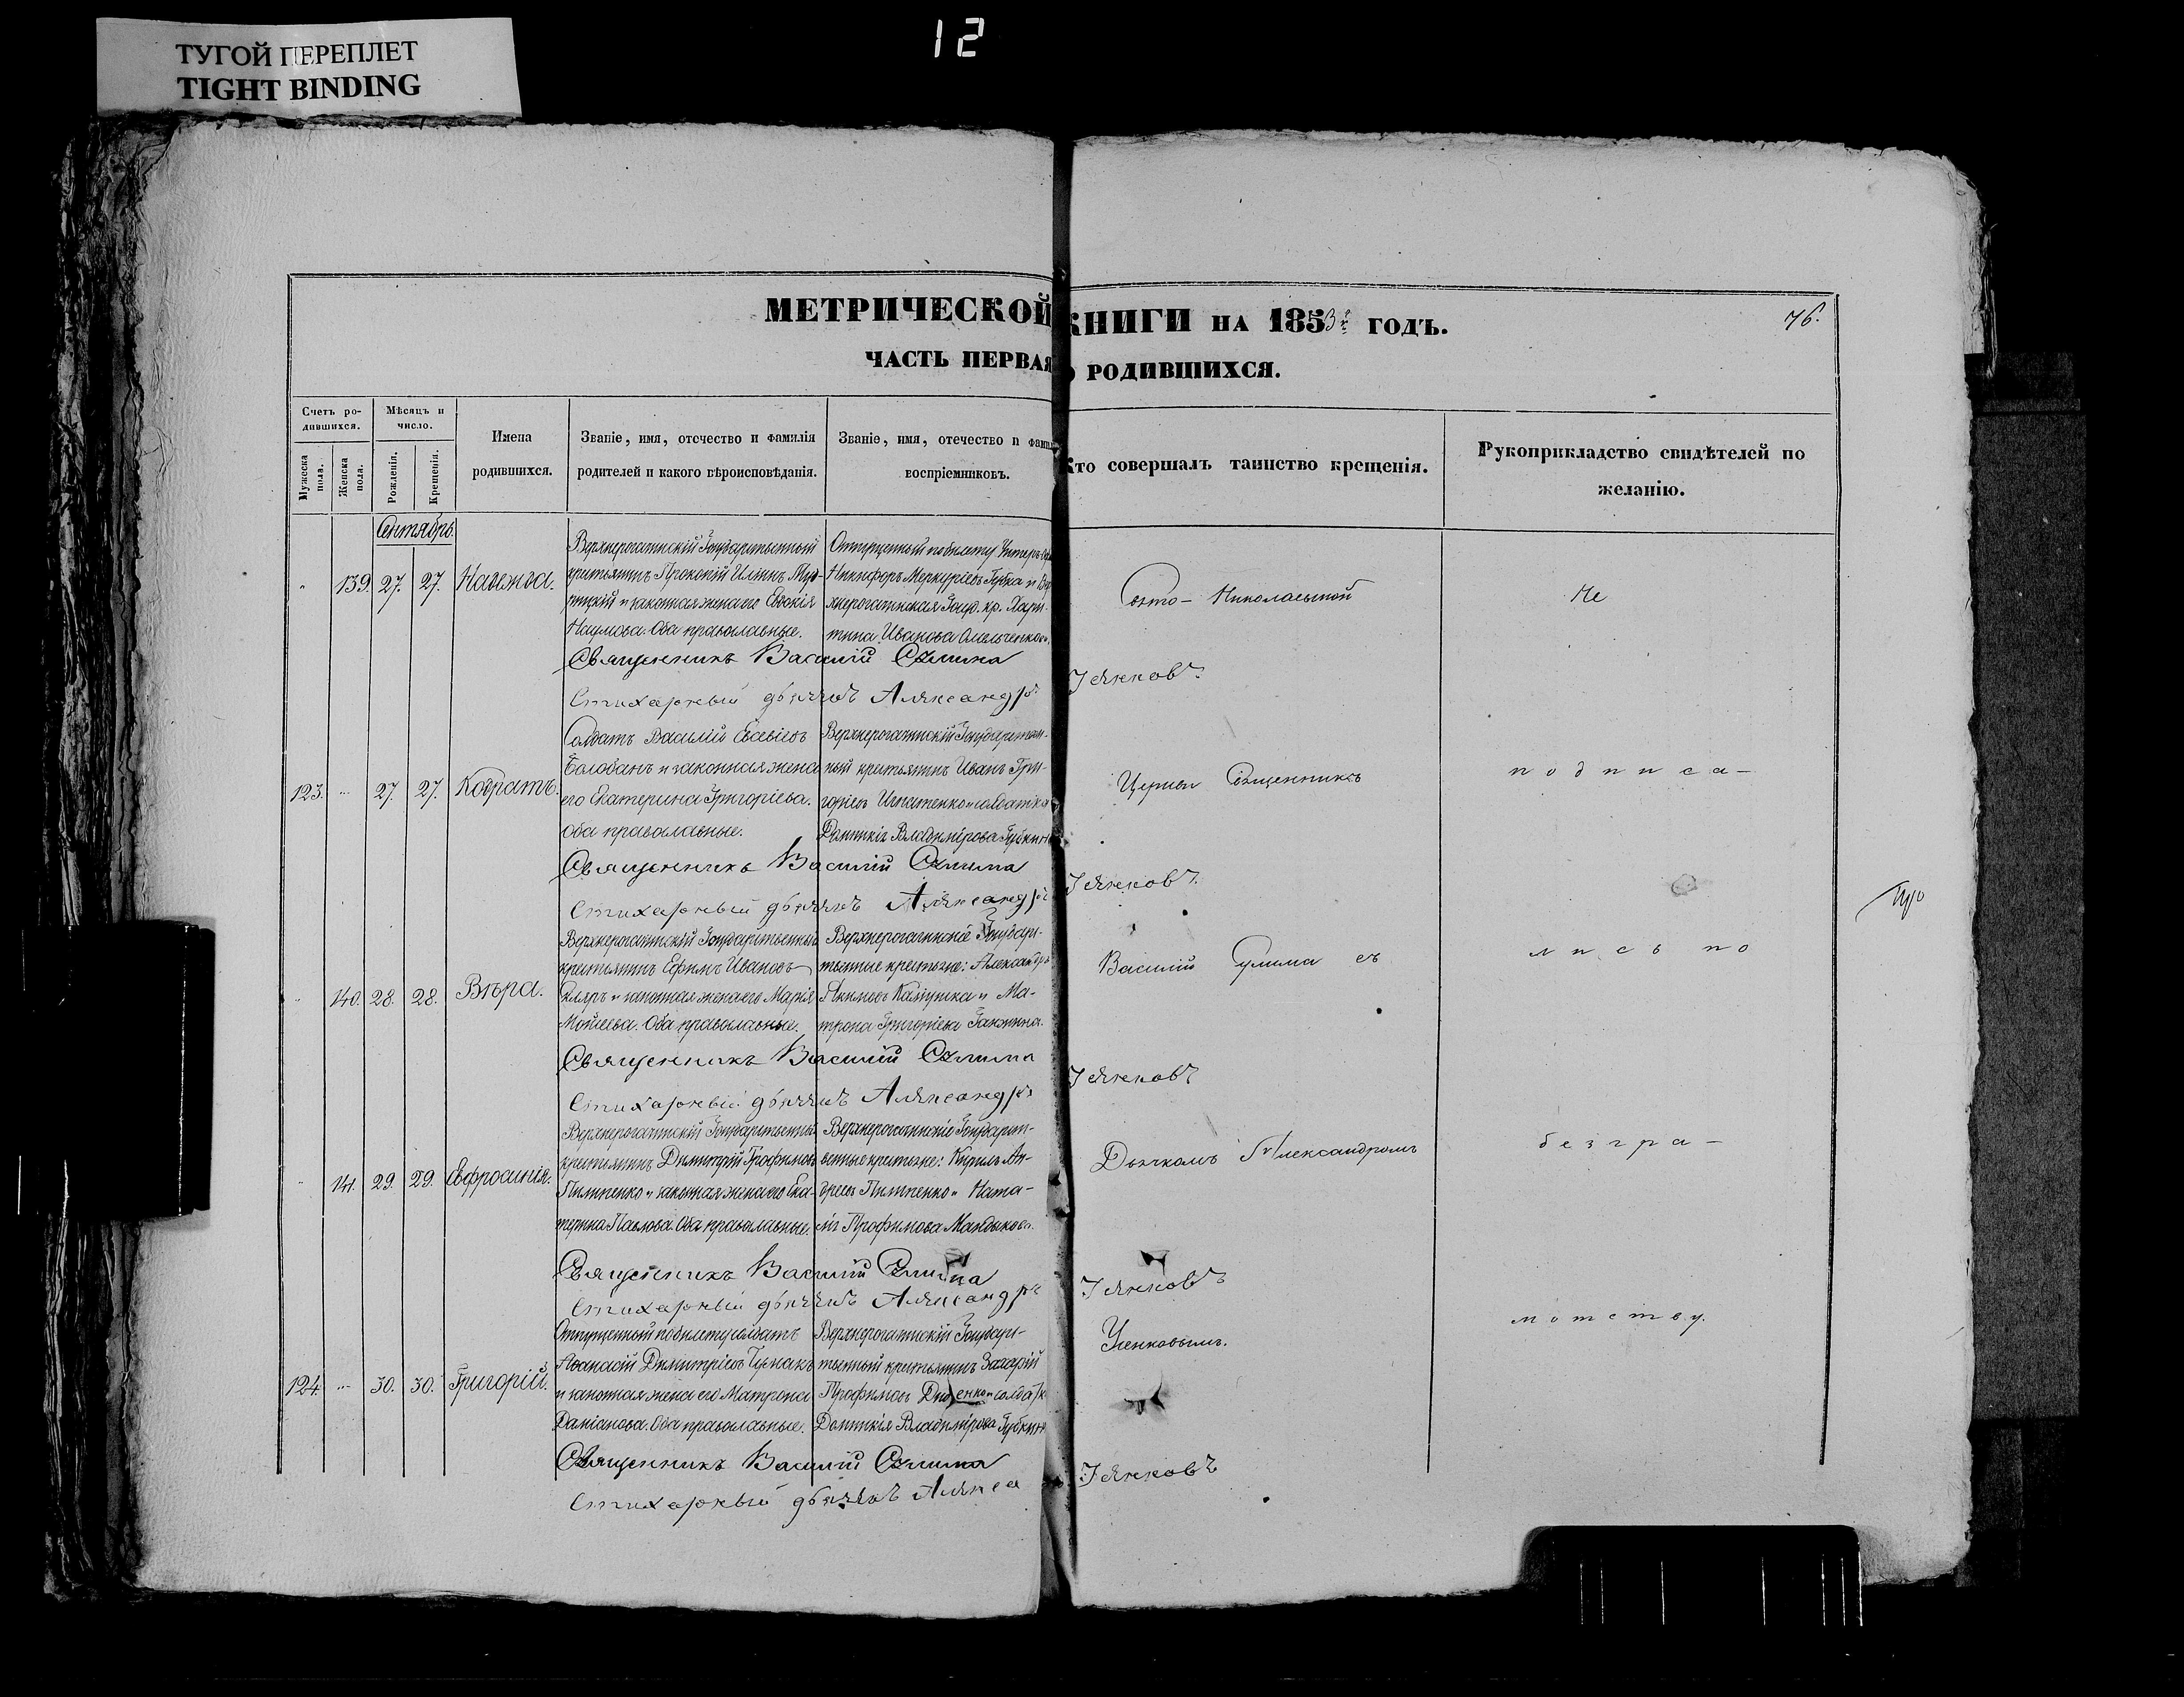 12
ТУГОЙ ПЕРЕПЛЕТ
TIGHT BINDING
МЕТРИЧЕСКОЙ КНИГИ НА 1853й ГОДЪ.
76.
ЧАСТЬ ПЕРВАЯ О РОДИВШИХСЯ.
Счетъ ро-
дившихся.
Мужеска пола.
Женска пола.
Мѣсяцъ и
число.
Рожденія.
Крещенія.
Имена
родившихся.
Званіе, имя, отечество и фамилія
родителей и какого вѣроисповѣданія.
Званіе, имя, отечество и фамил
воспріемниковъ.
Кто совершалъ таинство крещенія.
Рукоприкладство свидѣтелей по
желанію.
Сентябрь.
" 139. 27. 27. Надежда.
Верхнерогачинскій Государственный
крестьянинъ Прокопій Илiинъ
и законная жена его Евдокія
Наумова. Оба православные.
Отпущенный по билету Унтеръ
Никифоръ Меркуріевъ Губка и Ве
рхнерогачинская Госуд. кр. Хари-
тина Иванова Омельченкова.
Свято- Николаевской
Не
Священникъ Василій Сулима
Стихарный дьячекъ Александръ Усенковъ.
123. ... 27. 27. Кодратъ.
Солдатъ Василій Евсевіевъ
Болобанъ и законная жена
его Екатерина Григоріева.
Оба православные.
Верхнерогачинскій Государствен-
ный крестьянинъ Иванъ Гри-
горіевъ Игнатенко и солдатка
Домникія Владимірова Губкина
Церкви Священникъ
подписа-
Священникъ Василій Сулима
Стихарный дьячекъ Александръ Усенковъ.
" 140. 28. 28. Вѣра.
Верхнерогачинскій Государственный
крестьянинъ Ефимъ Ивановъ
Скляръ и законная жена его Марія
Мойсеева. Оба православные.
Верхнерогачинскіе Государ-
ственные крестьяне: Александръ
Акимовъ и Ма-
трона Григоріева
Василій Сулима съ
лись по
Священникъ Василій Сулима
Стихарный дьячекъ Александръ Усенковъ
" 141. 29. 29. Евфросинія.
Верхнерогачинскій Государственный
крестьянинъ Димитрій Трофимовъ
Пилипенко и законная жена его Ека-
терина Павлова. Оба православные.
Верхнерогачинскіе Государст-
венные крестьяне: Кирилъ Ан-
дреевъ Пилипенко и Ната-
лія Трофимова Мандыкова.
Дьячкомъ Александромъ
безгра-
Священникъ Василій Сулима
Стихарный дьячекъ Александръ Усенковъ
124. ... 30. 30. Григорій.
Отпущенный по билету солдатъ
Афанасій Димитріевъ
и законная жена его Матрона
Даміанова. Оба православные.
Верхнерогачинскій Государ-
ственный крестьянинъ Захарій
Трофимовъ и солдатк
Домникія Владимірова Губкина
Усенковымъ.
мотству.
Священникъ Василій Сулима
Стихарный дьячекъ Алекса Усенковъ